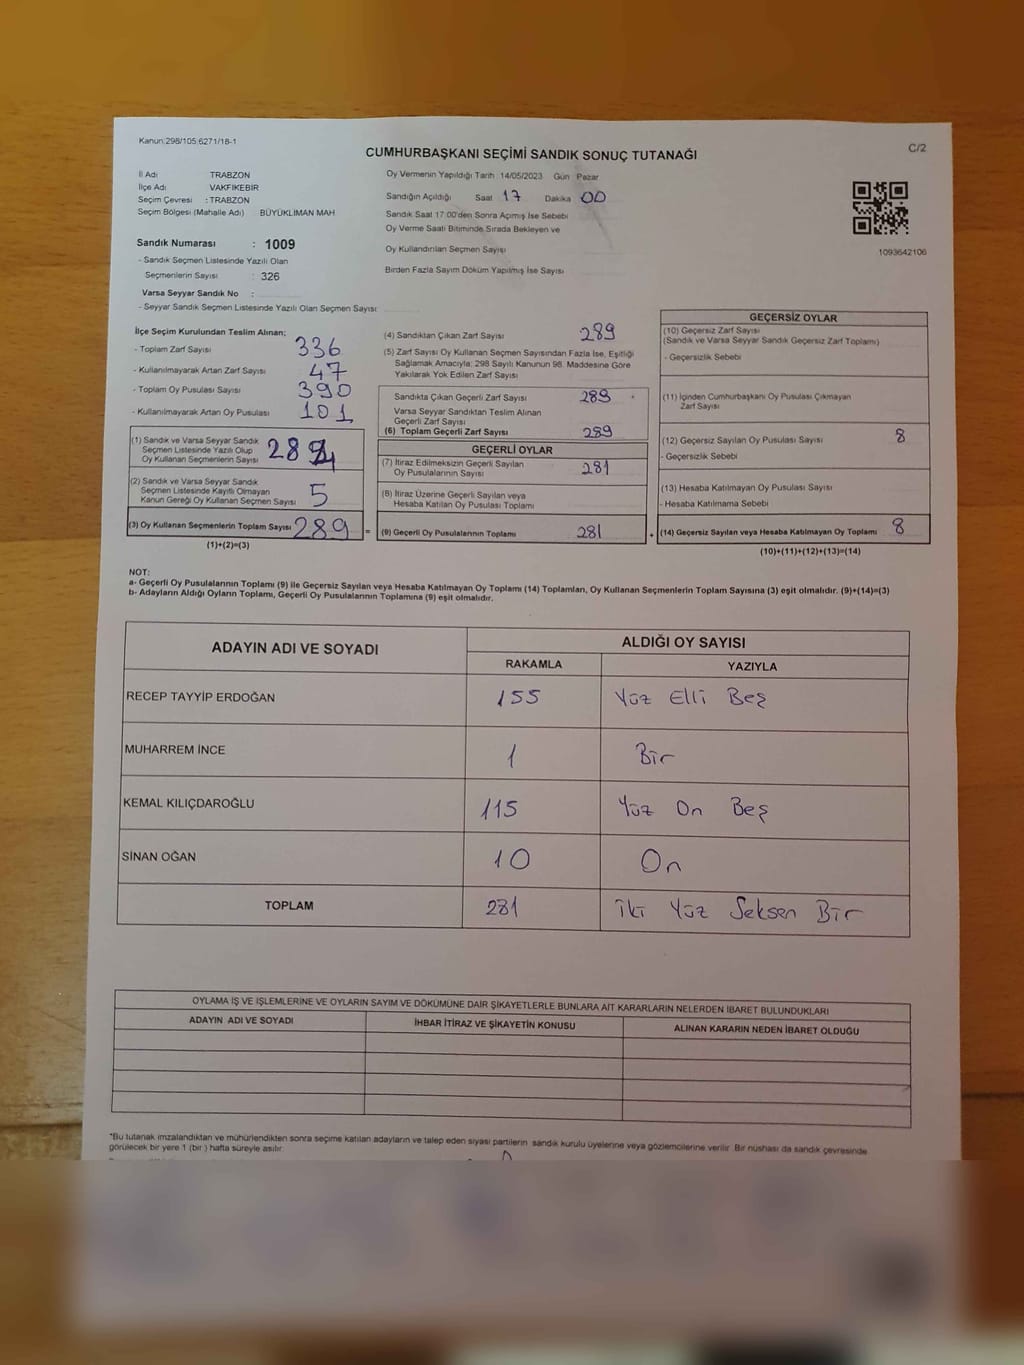 Kanun:298/105;6271/18-1
CUMHURBAŞKANI SEÇİMİ SANDIK SONUÇ TUTANAĞI
C/2
İl Adı TRABZON
İlçe Adı VAKFIKEBİR
Seçim Çevresi : TRABZON
Seçim Bölgesi (Mahalle Adı) BÜYÜKLİMAN MAH
Sandık Numarası : 1009
- Sandık Seçmen Listesinde Yazılı Olan
Seçmenlerin Sayısı : 326
Varsa Seyyar Sandık No :
- Seyyar Sandık Seçmen Listesinde Yazılı Olan Seçmen Sayısı:
Oy Vermenin Yapıldığı Tarih 14/05/2023 Gün Pazar
Sandığın Açıldığı Saat 17 Dakika 00
Sandık Saat 17:00'den Sonra Açımış İse Sebebi
Oy Verme Saati Bitiminde Sırada Bekleyen ve
Oy Kullandırılan Seçmen Sayısı
Birden Fazla Sayım Döküm Yapılmış İse Sayısı
1093642106
İlçe Seçim Kurulundan Teslim Alınan;
- Toplam Zarf Sayısı 336
- Kullanılmayarak Artan Zarf Sayısı 47
- Toplam Oy Pusulası Sayısı 390
- Kullanılmayarak Artan Oy Pusulası 101
(1) Sandık ve Varsa Seyyar Sandık
Seçmen Listesinde Yazılı Olup
Oy Kullanan Seçmenlerin Sayısı 284
(2) Sandık ve Varsa Seyyar Sandık
Seçmen Listesinde Kayıtlı Olmayan
Kanun Gereği Oy Kullanan Seçmen Sayısı 5
(3) Oy Kullanan Seçmenlerin Toplam Sayısı 289 =
(1)+(2)=(3)
(4) Sandıktan Çıkan Zarf Sayısı 289
(5) Zarf Sayısı Oy Kullanan Seçmen Sayısından Fazla İse, Eşitliği
Sağlamak Amacıyla; 298 Sayılı Kanunun 98. Maddesine Göre
Yakılarak Yok Edilen Zarf Sayısı
Sandıkta Çıkan Geçerli Zarf Sayısı 289
Varsa Seyyar Sandıktan Teslim Alınan
Geçerli Zarf Sayısı
(6) Toplam Geçerli Zarf Sayısı 289
GEÇERLİ OYLAR
(7) İtiraz Edilmeksizin Geçerli Sayılan
Oy Pusulalarının Sayısı 281
(8) İtiraz Üzerine Geçerli Sayılan veya
Hesaba Katılan Oy Pusulası Toplamı
(9) Geçerli Oy Pusulalarının Toplamı 281 +
GEÇERSİZ OYLAR
(10) Geçersiz Zarf Sayısı
(Sandık ve Varsa Seyyar Sandık Geçersiz Zarf Toplamı)
- Geçersizlik Sebebi
(11) İçinden Cumhurbaşkanı Oy Pusulası Çıkmayan
Zarf Sayısı
(12) Geçersiz Sayılan Oy Pusulası Sayısı 8
- Geçersizlik Sebebi
(13) Hesaba Katılmayan Oy Pusulası Sayısı
- Hesaba Katılmama Sebebi
(14) Geçersiz Sayılan veya Hesaba Katılmayan Oy Toplamı 8
(10)+(11)+(12)+(13)=(14)
NOT:
a- Geçerli Oy Pusulalarının Toplamı (9) ile Geçersiz Sayılan veya Hesaba Katılmayan Oy Toplamı (14) Toplamları, Oy Kullanan Seçmenlerin Toplam Sayısına (3) eşit olmalıdır. (9)+(14)=(3)
b- Adayların Aldığı Oyların Toplamı, Geçerli Oy Pusulalarının Toplamına (9) eşit olmalıdır.
ADAYIN ADI VE SOYADI ALDIĞI OY SAYISI
RAKAMLA YAZIYLA
RECEP TAYYİP ERDOĞAN 155 Yüz Elli Beş
MUHARREM İNCE 1 Bir
KEMAL KILIÇDAROĞLU 115 Yüz On Beş
SİNAN OĞAN 10 On
TOPLAM 281 İki Yüz Seksen Bir
OYLAMA İŞ VE İŞLEMLERİNE VE OYLARIN SAYIM VE DÖKÜMÜNE DAİR ŞİKAYETLERLE BUNLARA AİT KARARLARIN NELERDEN İBARET BULUNDUKLARI
ADAYIN ADI VE SOYADI İHBAR İTİRAZ VE ŞİKAYETİN KONUSU ALINAN KARARIN NEDEN İBARET OLDUĞU
*Bu tutanak imzalandıktan ve mühürlendikten sonra seçime katılan adayların ve talep eden siyasi partilerin sandık kurulu üyelerine veya gözlemcilerine verilir. Bir nüshası da sandık çevresinde
görülecek bir yere 1 (bir) hafta süreyle asılır.